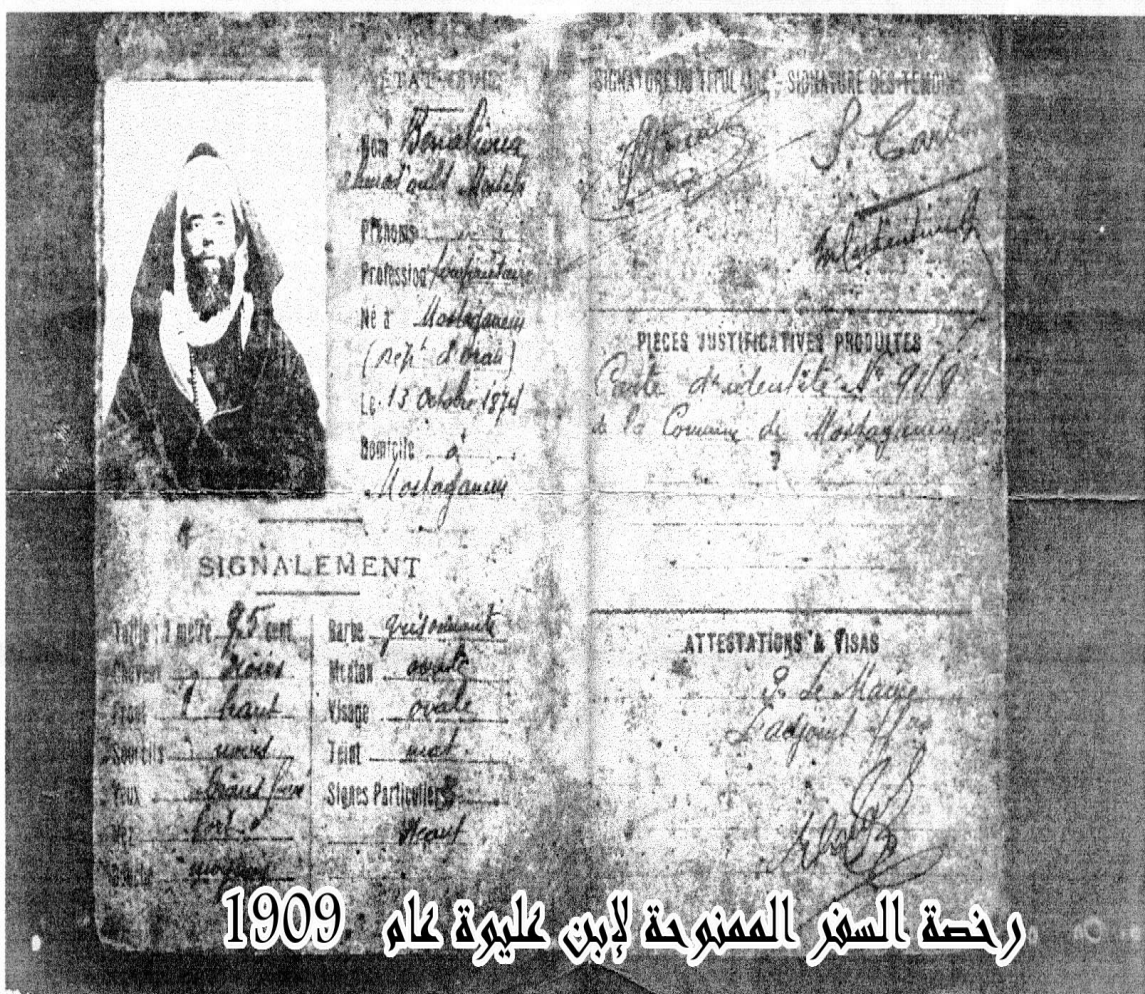 ÉTAT-CIVIL
Nom Benalioua
Prénoms
Profession
Né à Mostaganem
(Dépt d'Oran)
Le 13 Octobre 1874
Domicile à
Mostaganem
SIGNALEMENT
Taille : 1 mètre 75 cent.
Cheveux Noirs
Front haut
Sourcils noirs
Yeux
Nez fort
moyenne
Barbe grisonnante
Menton
Visage ovale
Teint mat
Signes Particuliers
Néant
SIGNATURE DU TITULAIRE - SIGNATURE DES TÉMOINS
PIÈCES JUSTIFICATIVES PRODUITES
Carte d'identité N°
de la Commune de Mostaganem
ATTESTATIONS & VISAS
P. le Maire
L'adjoint
رخصة السفر الممنوحة لإبن عليوة عام 1909